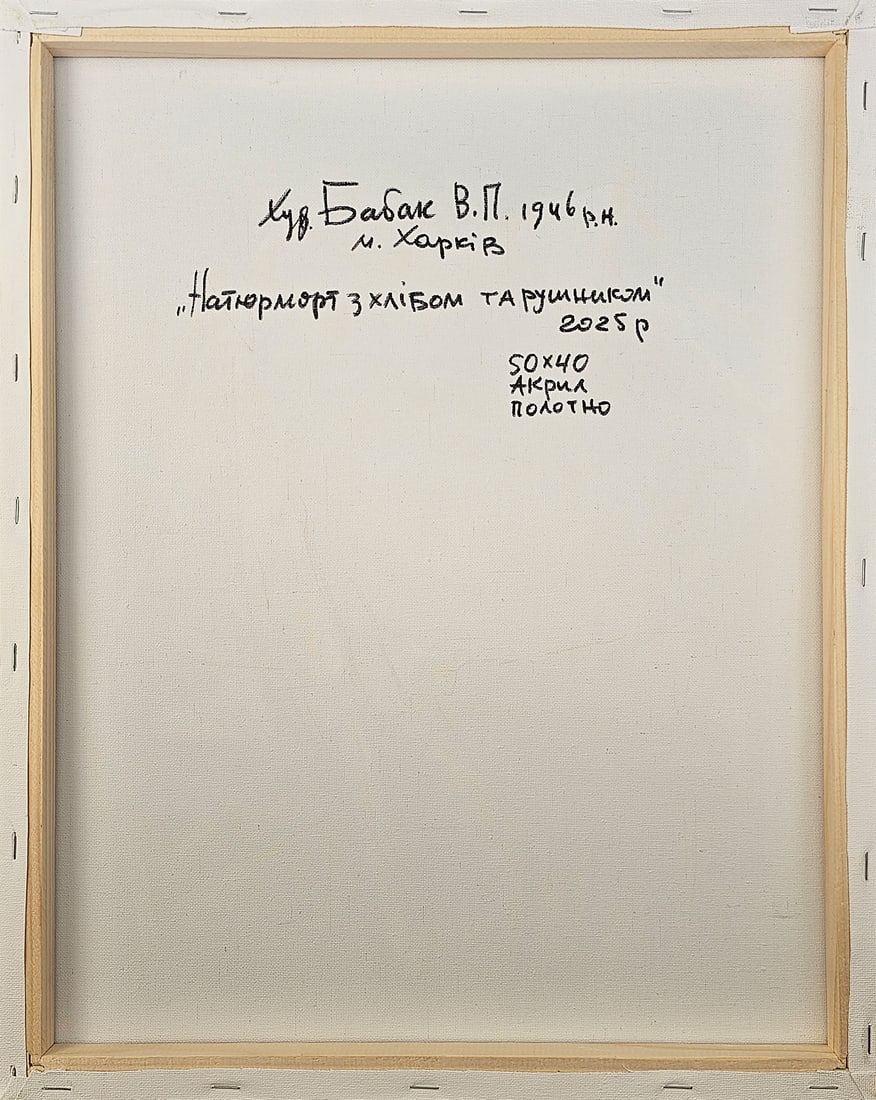 Худ. Бабак В.П. 1946 р.н.
м. Харків
„Натюрморт з хлібом та рушником"
2025р
50х40
Акрил
полотно